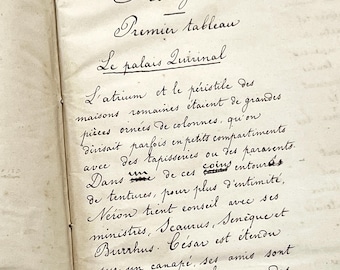 Premier tableau
Le palais Quirinal
L'atrium et le péristile des
maisons romaines étaient de grandes
pièces ornées de colonnes qu'on
divisait parfois en petits compartiments
avec des tapisseries ou des paravents
Dans un de ces coins entourés
de tentures, pour plus d'intimité,
Néron tient conseil avec ses
ministres, Scaurus, Sénèque et
Burrhus. César est étendu
sur un canapé, ses amis sont